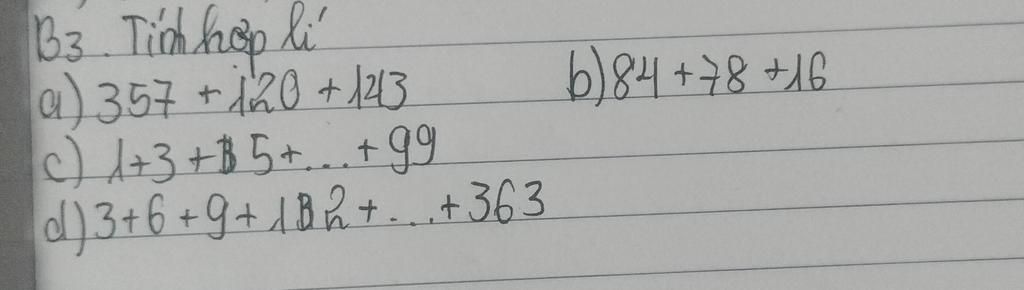 B3. Tính hợp lí
a) 357 + 120 + 143 b) 84 + 78 + 16
c) 1 + 3 + 5 + ... + 99
d) 3 + 6 + 9 + 12 + ... + 363